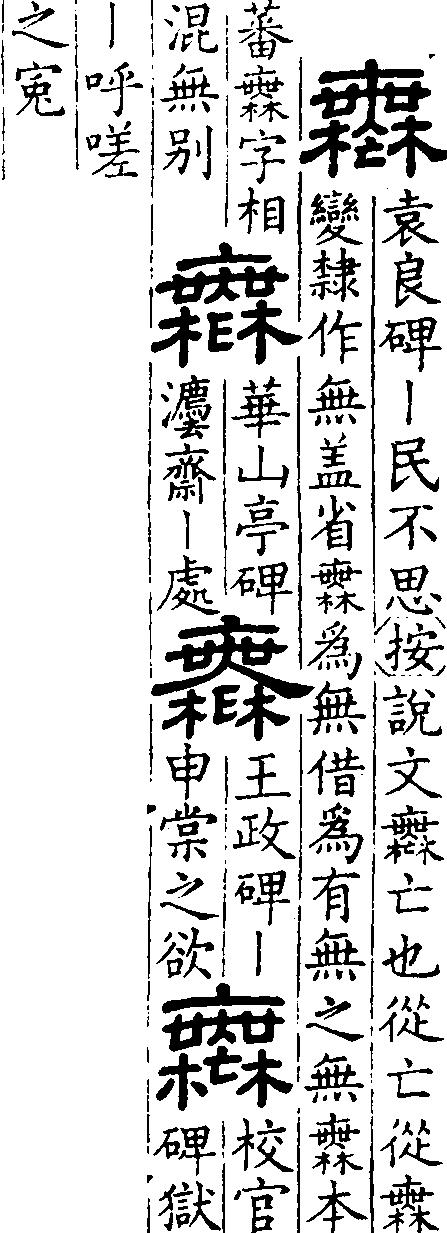 𣞤
袁良碑丨民不思按說文𣞤亡也從亡從橆
變隸作無盖省橆為無借為有無之無橆本
蕃橆字相
混無别
𣞤
華山亭碑
灋齋丨處
𣞤
王政碑丨
申棠之欲
𣞤
校官
碑獄
丨呼嗟
之寃